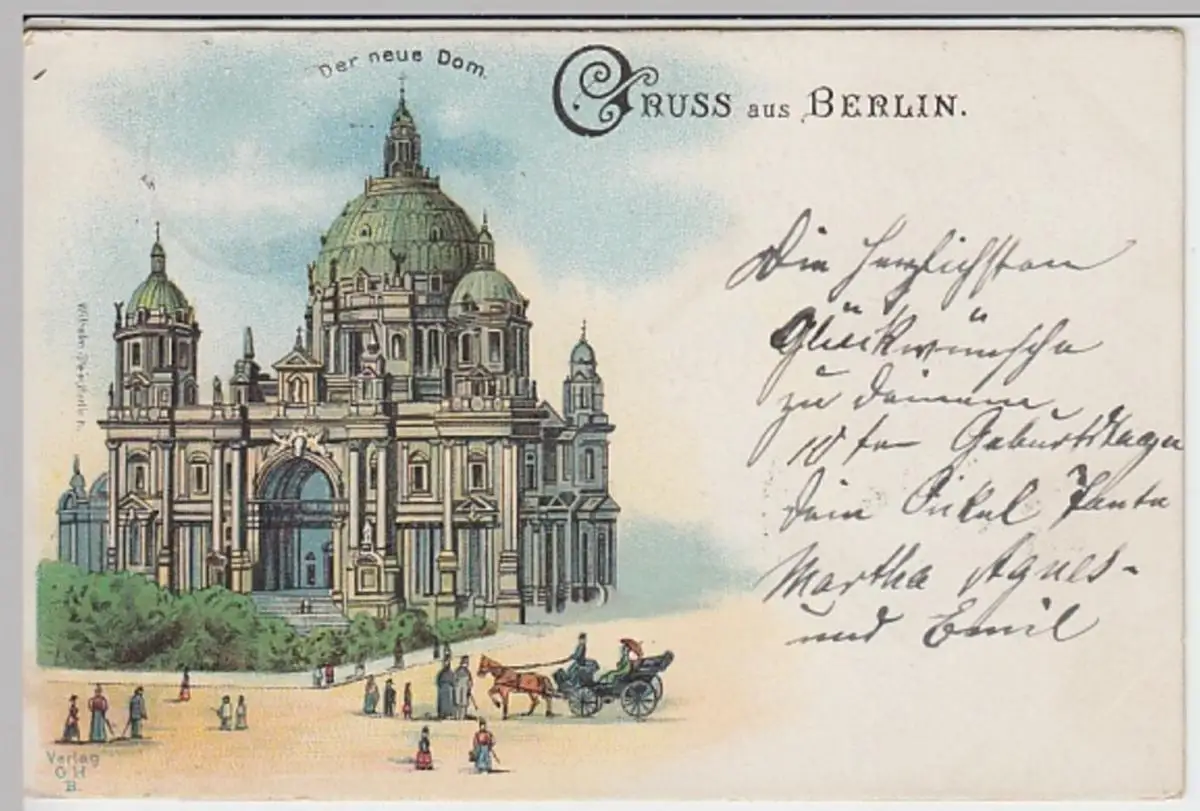 Der neue Dom.
GRUSS aus BERLIN.
Die herzlichsten
Glückwünsche
zu deinem
10ten Geburtstage
dein Onkel Tante
Martha Agnes-
und Emil
Verlag
G H
B.